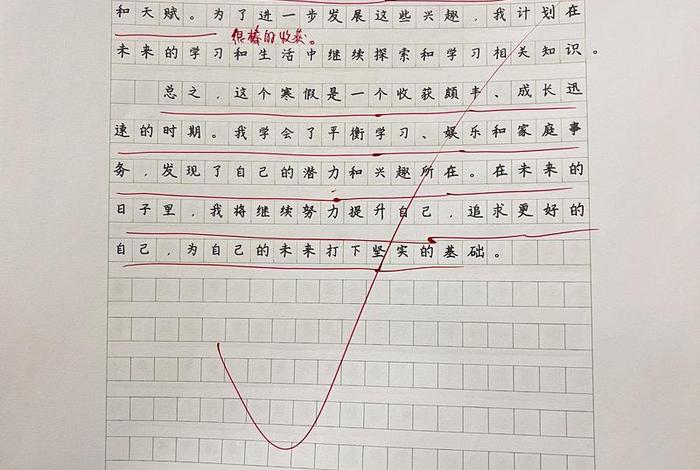 和天赋。为了进一步发展这些兴趣，我计划在
很棒的收获。
未来的学习和生活中继续探索和学习相关知识。
总之，这个寒假是一个收获颇丰、成长迅
速的时期。我学会了平衡学习、娱乐和家庭事
务，发现了自己的潜力和兴趣所在。在未来的
日子里，我将继续努力提升自己，追求更好的
自己，为自己的未来打下坚实的基础。